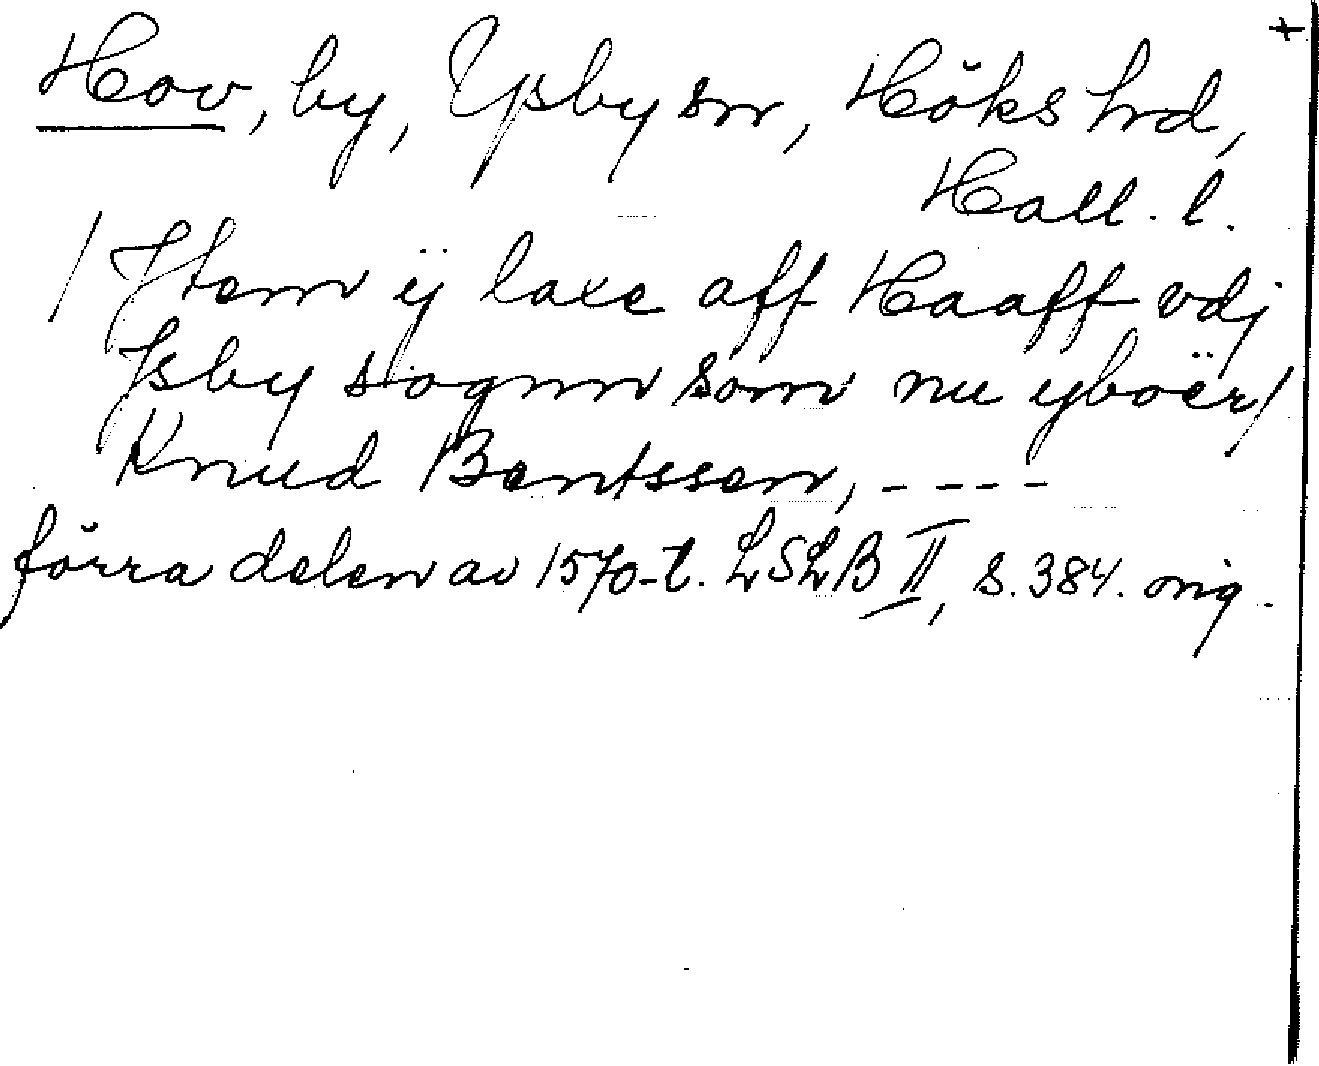 +
Hov, by, Ysby sn, Höks hrd,
Hall. l.
/ Jtem ij laxe aff Haaff vdj
Jsby sognn som nu ÿboër /
Knud Bentssen, ----
förra delen av 1570-t. LSLB II, s. 384. orig.